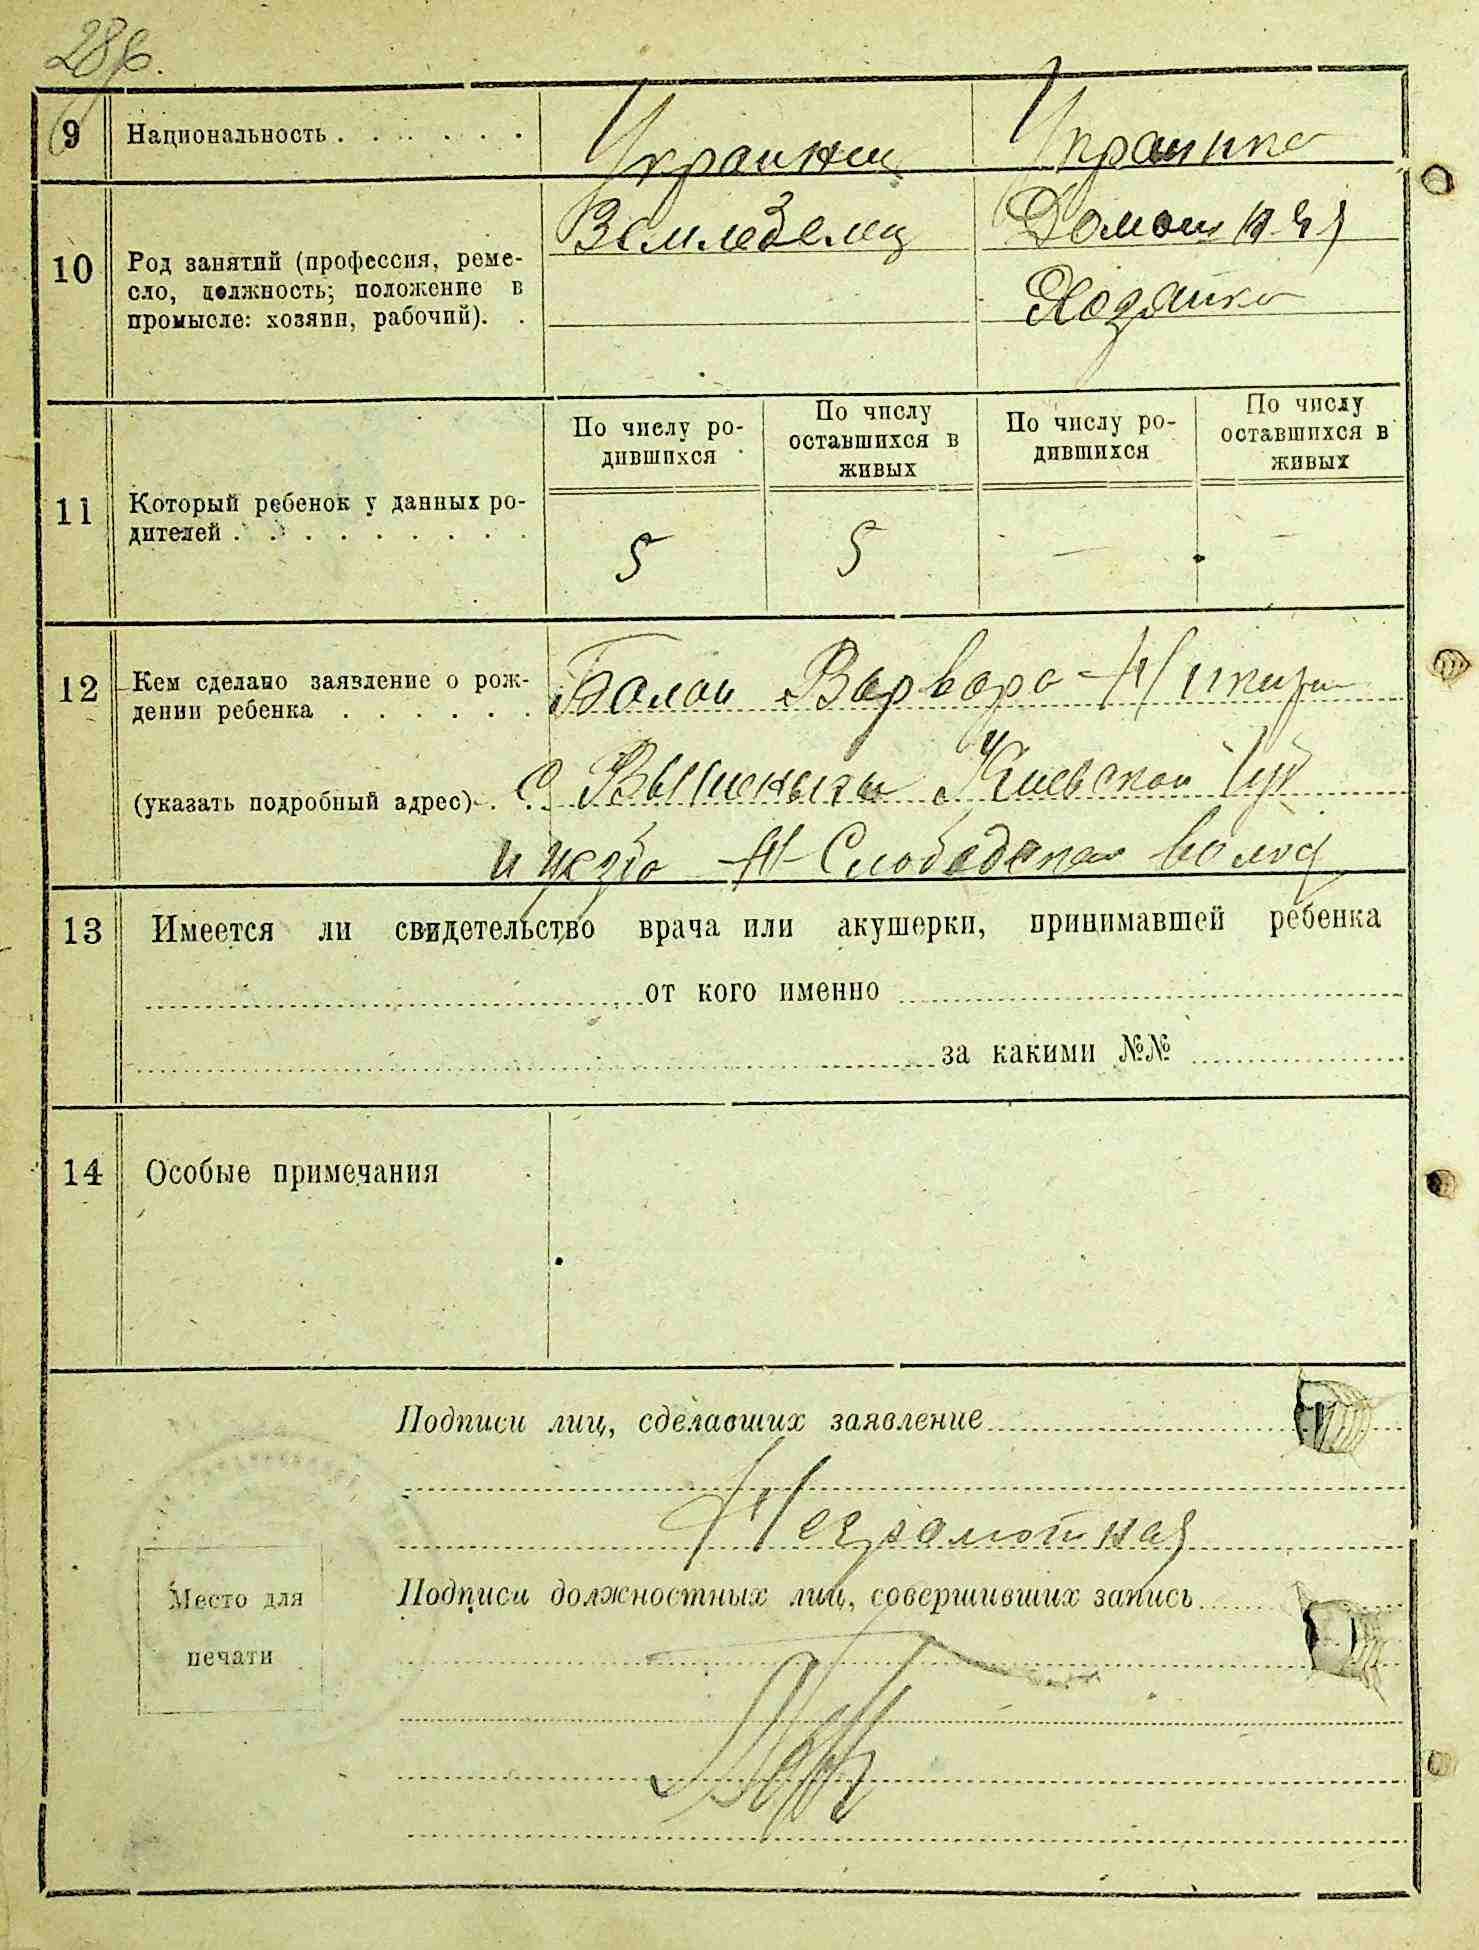 9 Национальность . . . . . . . Украинец Украинка
10 Род занятий (профессия, реме-
сло, должность; положение в
промысле: хозяин, рабочий). .
Земледелец Домашняя
Хозяйка
11 Который ребенок у данных ро-
дителей . . . . . . . . .
По числу ро-
дившихся
По числу
оставшихся в
живых
По числу ро-
дившихся
По числу
оставшихся в
живых
5 5 — —
12 Кем сделано заявление о рож-
дении ребенка . . . . . .
Варвара
(указать подробный адрес) . . с Киевской Губ
и уезда Н-Слободская волос
13 Имеется ли свидетельство врача или акушерки, принимавшей ребенка
от кого именно
за какими №№
14 Особые примечания
Подписи лиц, сделавших заявление
Неграмотная
Место для
печати
Подписи должностных лиц, совершивших запись